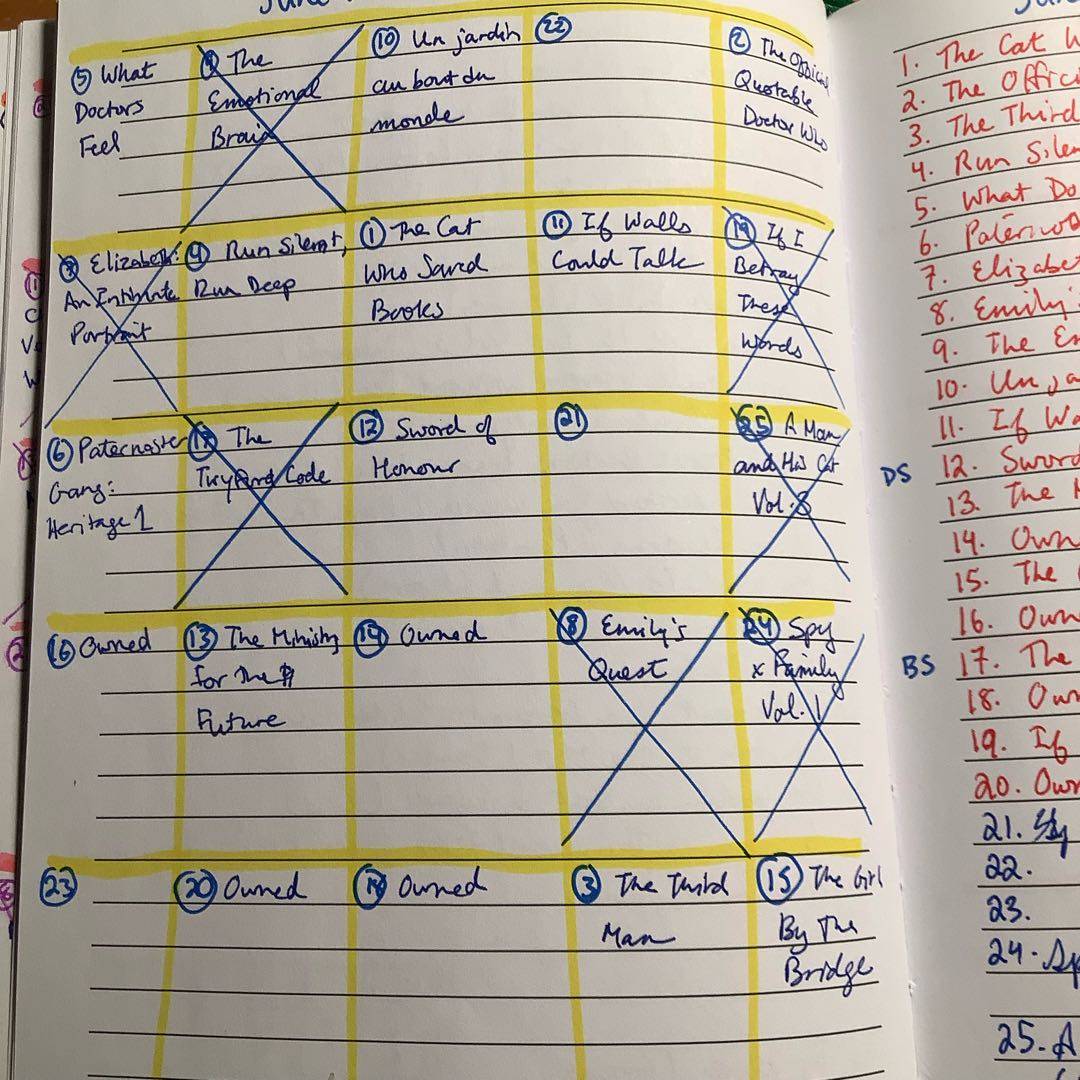 June
⑤ What
Doctors
Feel
⑨ The
Emotional
Brain
⑩ Un jardin
au bout du
monde
㉒
② The Official
Quotable
Doctor Who
⑦ Elizabeth:
An Intimate
Portrait
④ Run Silent,
Run Deep
① The Cat
Who Saved
Books
⑪ If Walls
Could Talk
⑲ If I
Betray
These
Words
⑥ Paternoster
Gang:
Heritage 1
⑰ The
Code
⑫ Sword of
Honour
㉑
㉕ A Man
and His Cat
Vol. 8
⑯ Owned
⑬ The Ministry
for the
Future
⑭ Owned
⑧ Emily's
Quest
㉔ Spy
x Family
Vol. 1
㉓
⑳ Owned
⑱ Owned
③ The Third
Man
⑮ The Girl
By The
Bridge
1. The Cat W
2. The Offici
3. The Third
4. Run Silen
5. What Do
6. Paternos
7. Elizabet
8. Emily's
9. The Em
10. Un ja
11. If Wa
DS
12. Sword
13. The M
14. Own
15. The
16. Own
BS
17. The
18. Own
19. If
20. Own
21.
22.
23.
24. Sp
25. A